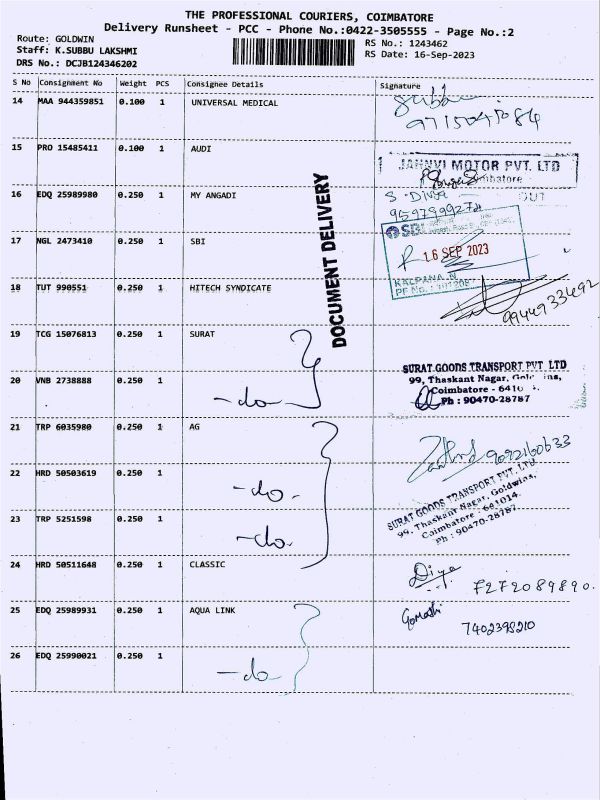 THE PROFESSIONAL COURIERS, COIMBATORE
Delivery Runsheet - PCC - Phone No.:0422-3505555 - Page No.:2
Route: GOLDWIN
RS No.: 1243462
Staff: K.SUBBU LAKSHMI
RS Date: 16-Sep-2023
DRS No.: DCJB124346202
S No Consignment No Weight PCS Consignee Details Signature
14 MAA 944359851 0.100 1 UNIVERSAL MEDICAL
15 PRO 15485411 0.100 1 AUDI
JAHNVI MOTOR PVT. LTD
DOCUMENT DELIVERY
16 EDQ 25989980 0.250 1 MY ANGADI
S. Divya
OUT
SBI
17 NGL 2473410 0.250 1 SBI
16 SEP 2023
KALPANA. N
18 TUT 990551 0.250 1 HITECH SYNDICATE
9944933492
19 TCG 15076813 0.250 1 SURAT
SURAT GOODS TRANSPORT PVT LTD
99, Thaskant Nagar,
Coimbatore -
Ph : 90470-28787
20 VNB 2738888 0.250 1
-do-
21 TRP 6035980 0.250 1 AG
9092160633
22 HRD 50503619 0.250 1
-do-
SURAT GOODS TRANSPORT PVT. LTD
99, Thaskant Nagar, Goldwins,
Coimbatore : 641014.
Ph : 90470-28787
23 TRP 5251598 0.250 1
-do-
24 HRD 50511648 0.250 1 CLASSIC
Diya
7272089890.
25 EDQ 25989931 0.250 1 AQUA LINK
Gomathi
7402398210
26 EDQ 25990021 0.250 1
-do-